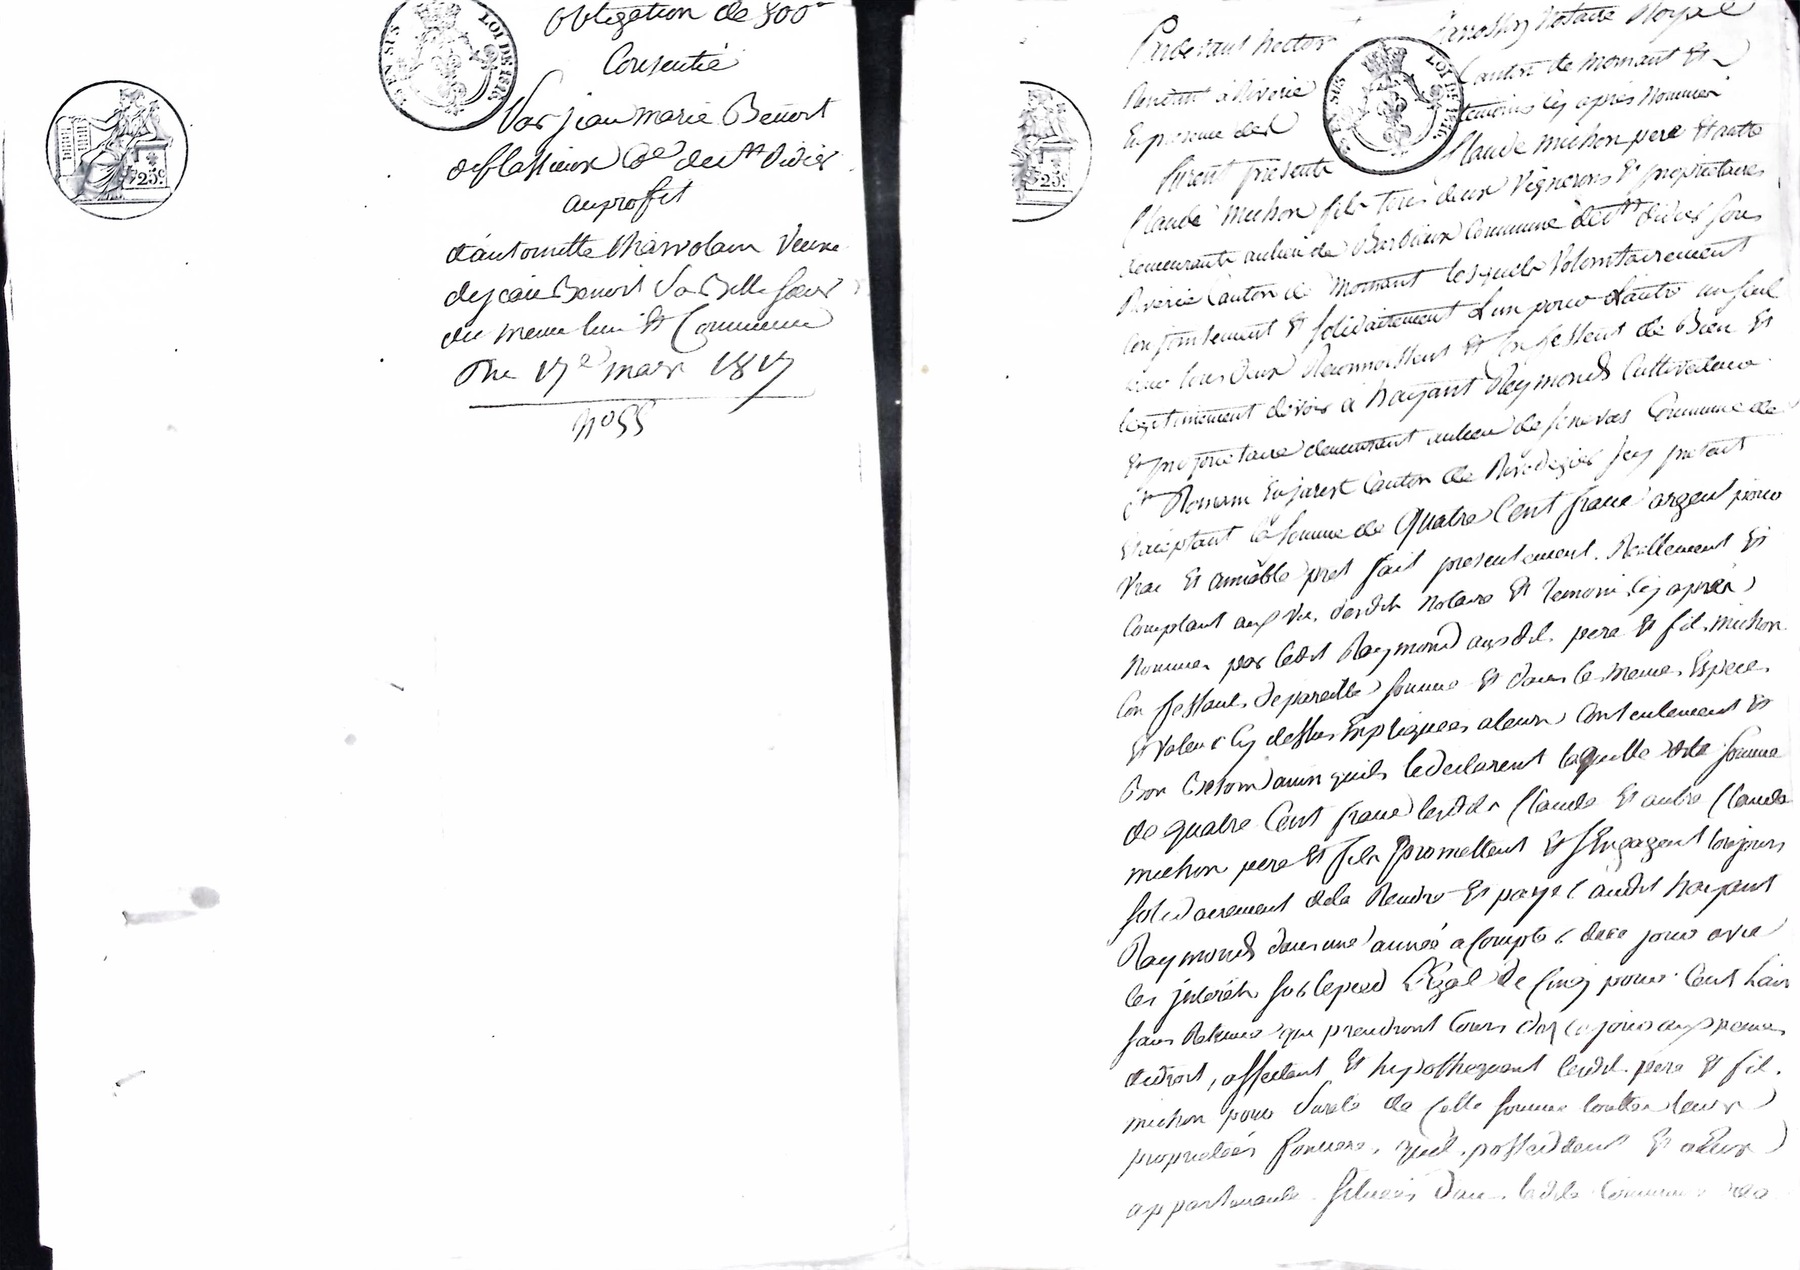 Obligation de 500
Consentie
Par jean marie Benoit
de flassieux Cne de st didier
au profit
d'antoinette Charvolain Veuve
de jean Benoit Sa Belle Soeur
du meme lieu et Commune
Du 17e mars 1817
N° 55
EN SUS
LOI DE 1816
25c
Pardevant hector notaire Royal
Resident à Riverie Canton de mornant et
En presence des temoins cy après Nommés
furent présents Claude michon pere et autre
Claude michon fils tous deux Vignerons et propriétaires
demeurants au lieu de Commune de st didier sous
Riverie Canton de mornant lesquels Volontairement
Conjointement et solidairement l'un pour l'autre un seul
pour tous deux Reconnoissent et Confessent de Bien et
legitimement devoir à hayant Raymond Cultivateur
Et propriétaire demeurant au lieu de Commune de
st Romain En jarest Canton de Rive de gier icy présent
Et acceptant la somme de quatre Cent francs argent pour
vrai et amiable pret fait presentement. Reellement et
Comptant aux vu desdits Notaire et temoins cy après
Nommés par ledit Raymond auxdits pere et fils michon
Confessants de pareille somme et dans les memes Especes
Et valeur cy dessus Expliquées a leurs Contentement et
Bon ainsi quils le declarent laquelle ditte somme
de quatre Cent francs lesdits Claude et autre Claude
michon pere et fils promettent et s'Engagent toujours
solidairement de la Rendre et payer audit hayant
Raymond dans une année a Compter de ce jour avec
les interets sur le pied Legal de Cinq pour Cent l'an
sans Retenue qui prendront Cours des ce jour aux peines
de droit, affectent et hypothequent lesdits pere et fils
michon pour sureté de Cette somme touttes leurs
propriétés foncieres, quils possedent et a eux
appartenants situées dans laditte Commune de